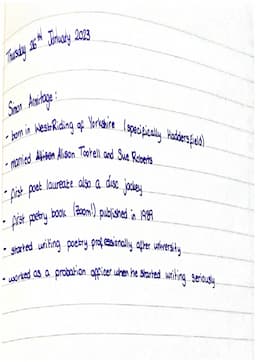 Thursday 26th January 2023
Simon Armitage:
- born in West Riding of Yorkshire (specifically Huddersfield)
- married Alison Tootell and Sue Roberts
- first poet laureate also a disc jockey
- first poetry book (Zoom!) published in 1989
- started writing poetry professionally after university
- worked as a probation officer when he started writing seriously